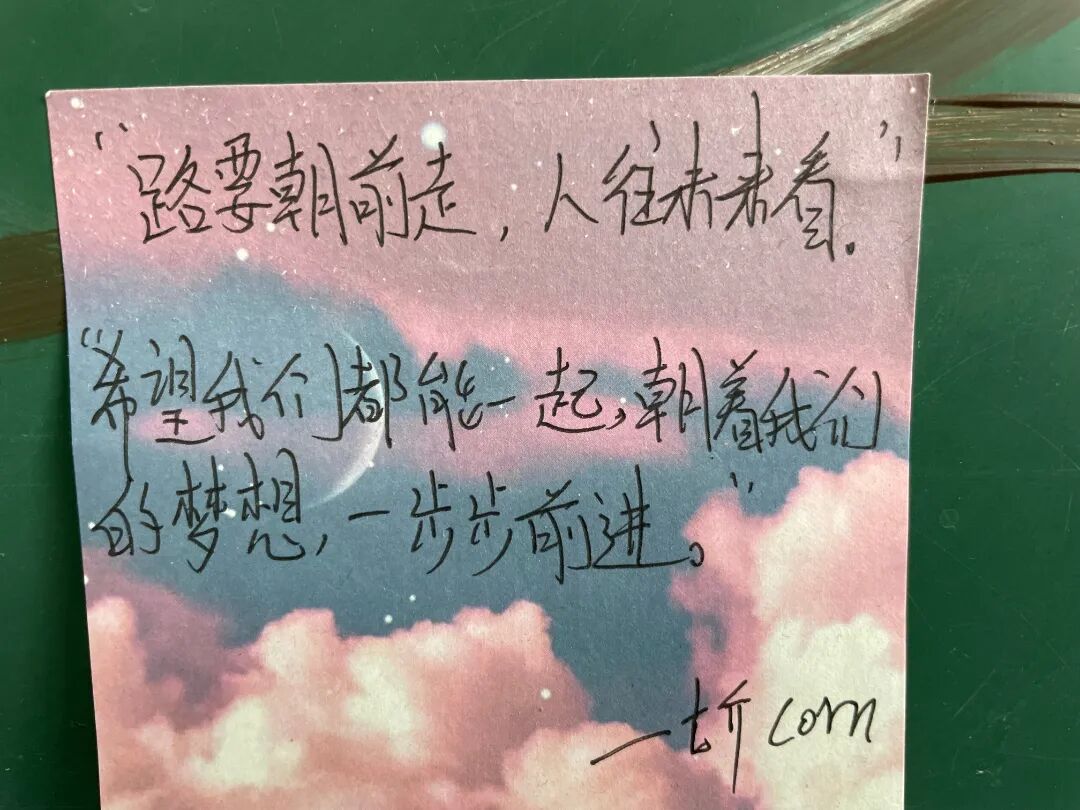 “路要朝前走，人往未来看。”
“希望我们都能一起，朝着我们
的梦想，一步步前进。”
corn